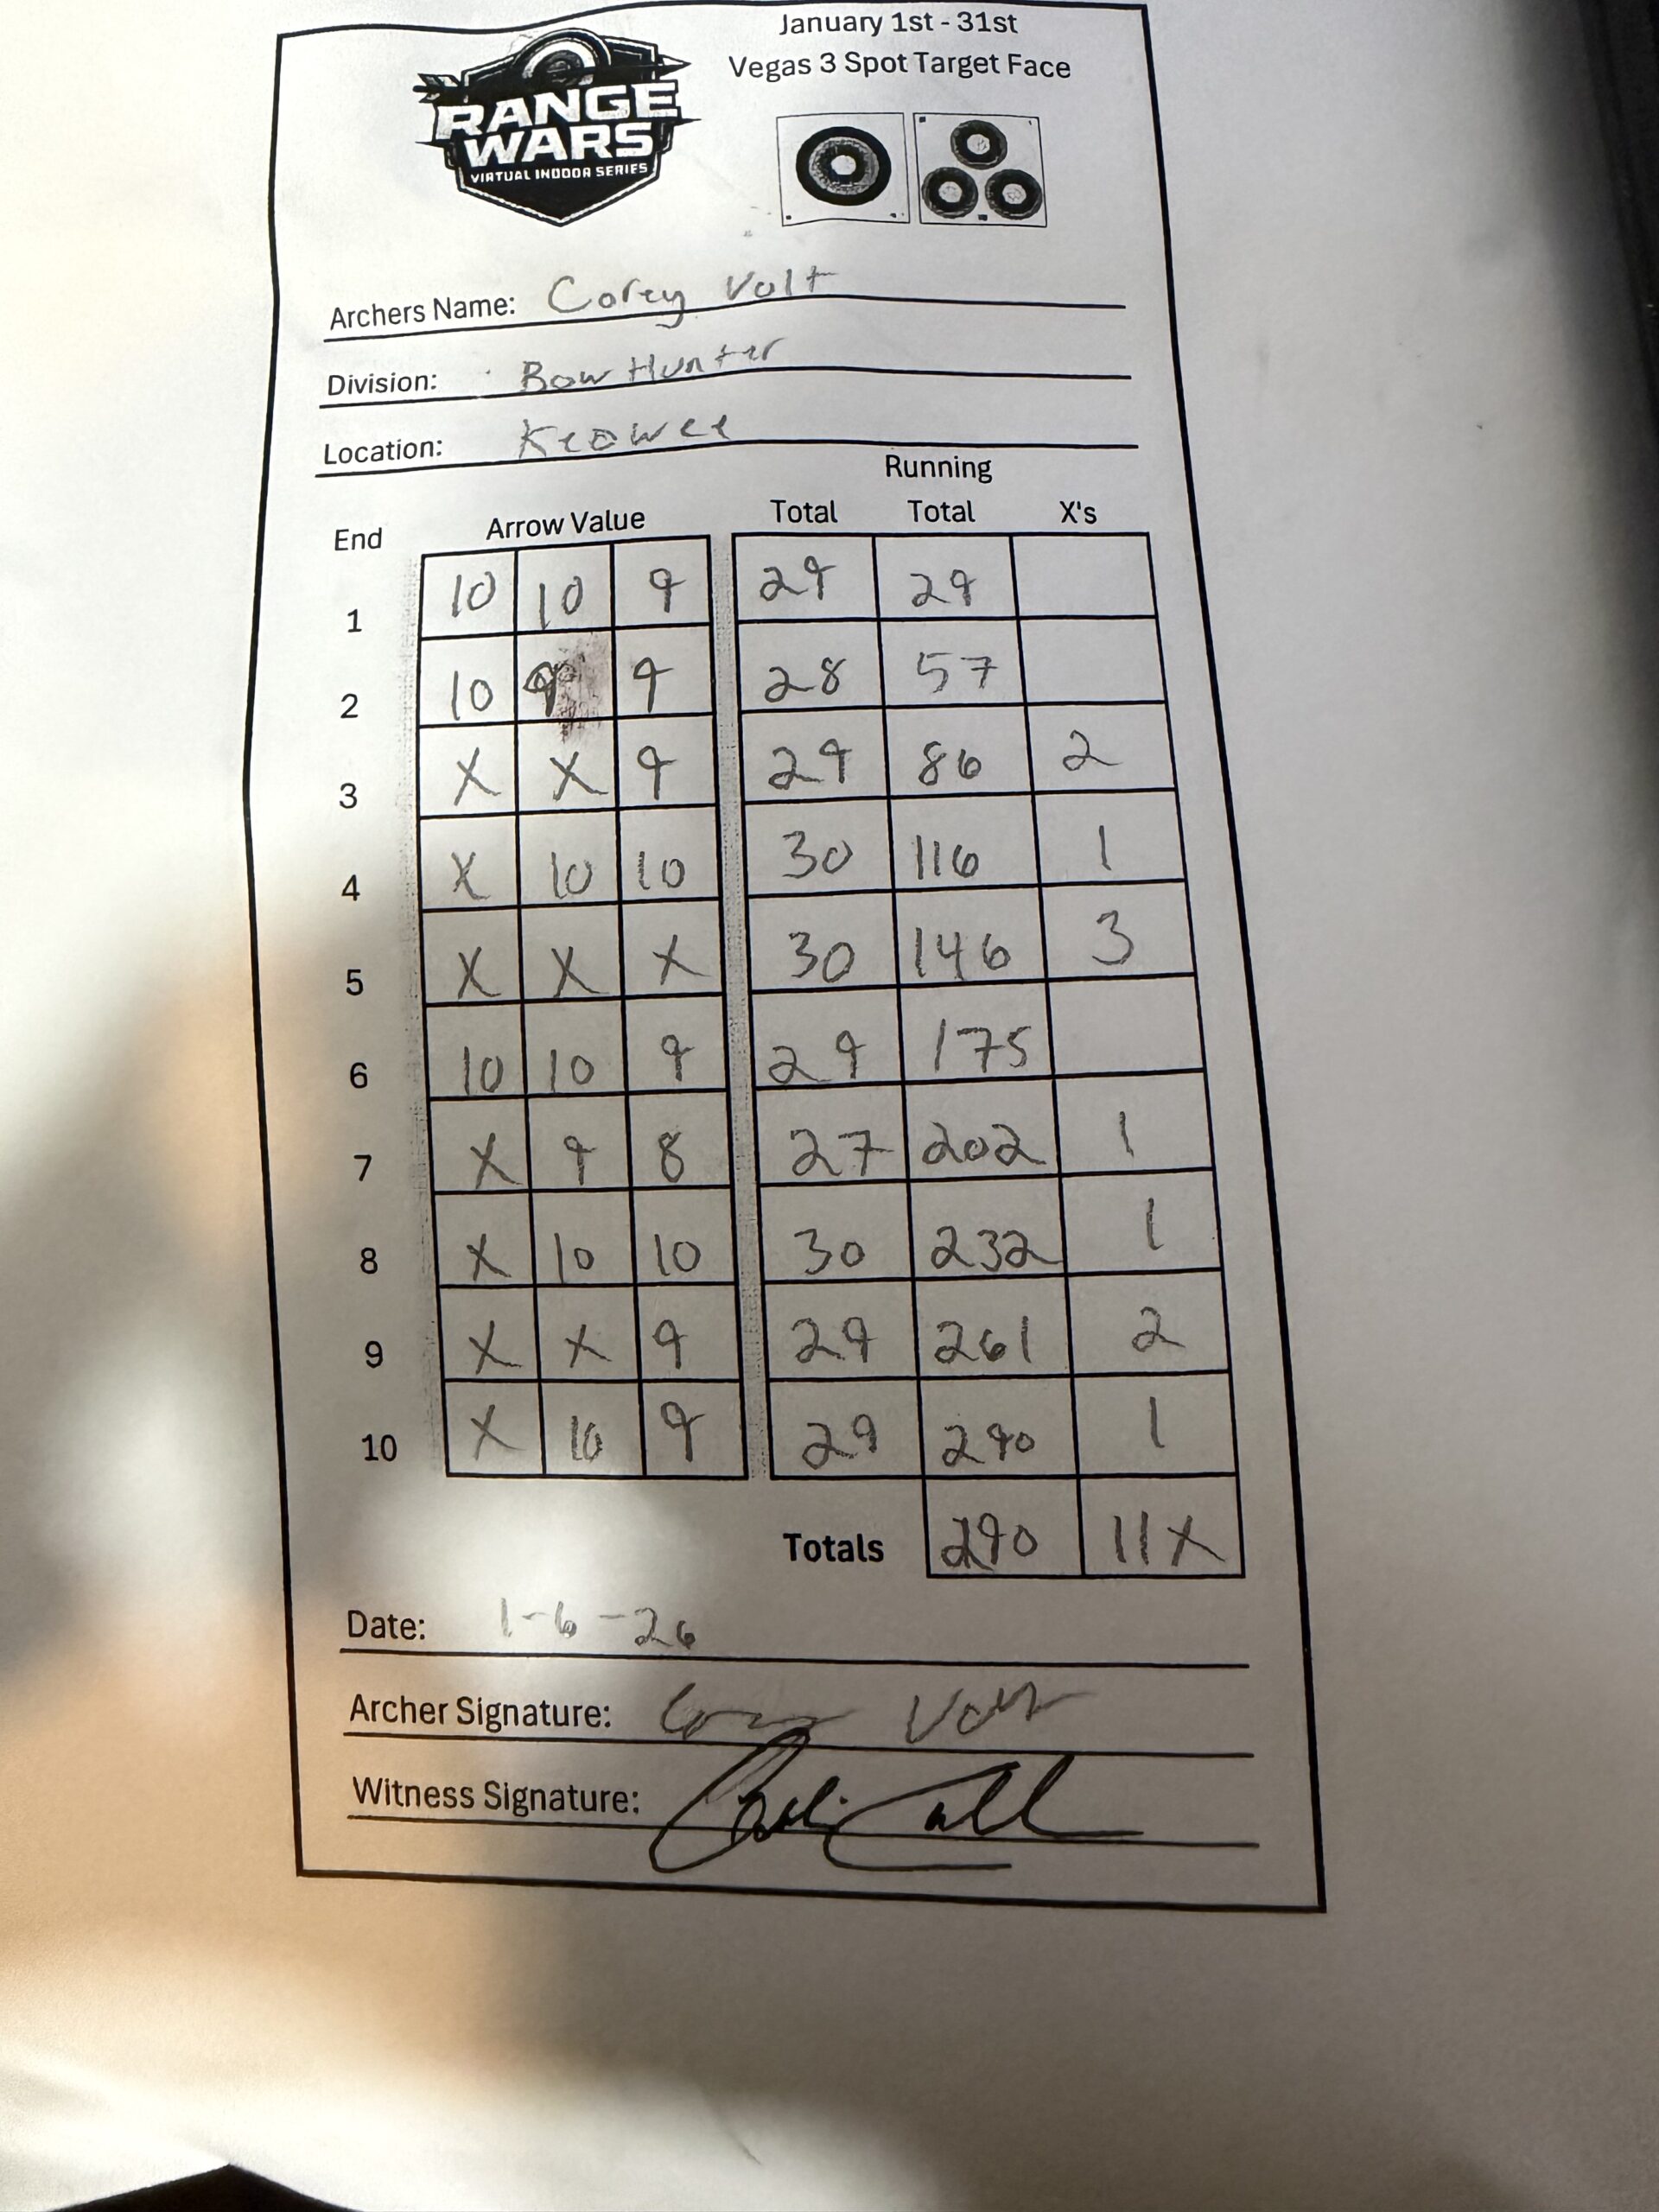 January 1st - 31st
Vegas 3 Spot Target Face
RANGE
WARS
VIRTUAL INDOOR SERIES
Archers Name: Corey Volt
Division: Bow Hunter
Location: Keowee
Running
End Arrow Value Total Total X's
1 10 10 9 29 29
2 10 9 9 28 57
3 X X 9 29 86 2
4 X 10 10 30 116 1
5 X X X 30 146 3
6 10 10 9 29 175
7 X 9 8 27 202 1
8 X 10 10 30 232 1
9 X X 9 29 261 2
10 X 10 9 29 290 1
Totals 290 11X
Date: 1-6-26
Archer Signature: Corey Volt
Witness Signature: